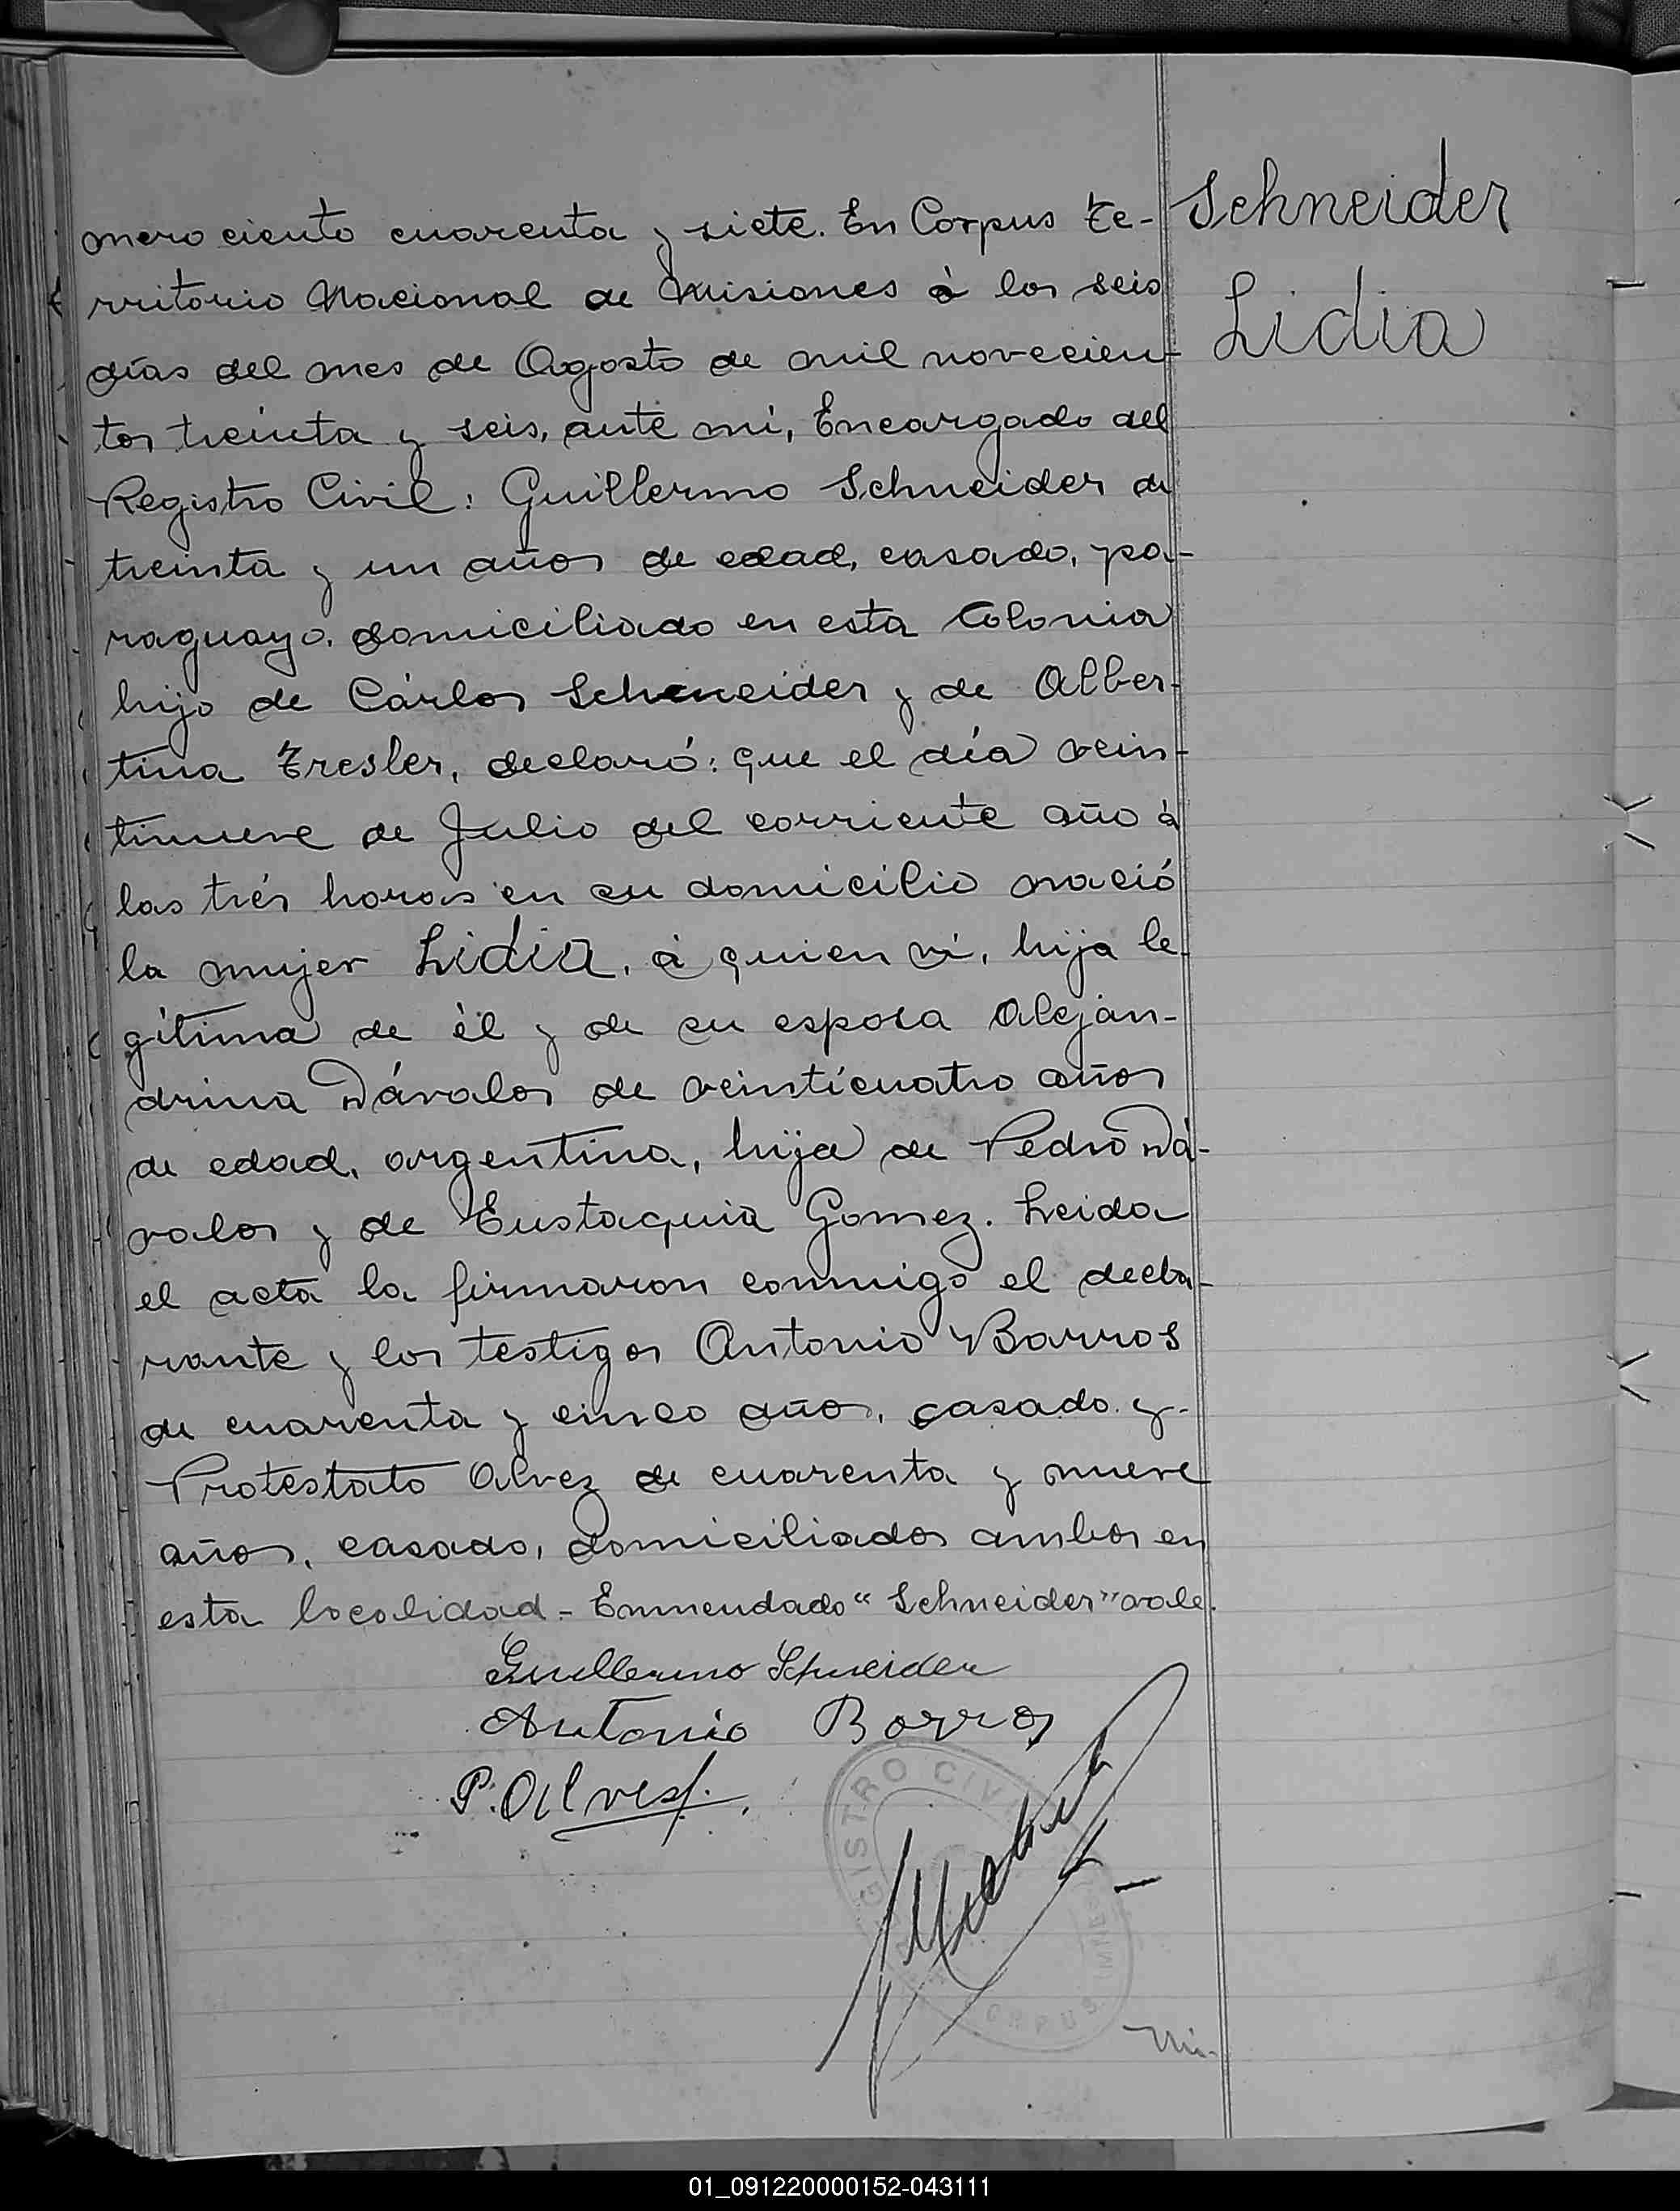 mero ciento cuarenta y siete. En Corpus Te-
Schneider
rritorio Nacional de Misiones à los seis
Lidia
días del mes de Agosto de mil novecien-
tos treinta y seis, ante mi, Encargado del
Registro Civil: Guillermo Schneider de
treinta y un años de edad, casado, pa-
raguayo, domiciliado en esta Colonia
hijo de Cárlos Schneider y de Alber-
tina Tresler, declaró: que el día vein-
tinueve de Julio del corriente año à
las trés horas en su domicilio nació
la mujer Lidia, à quien ví, hija le-
gítima de él y de su esposa Alejan-
drina Dávalos de veinticuatro años
de edad, argentina, hija de Pedro Dá-
valos y de Eustaquia Gomez. Leida
el acta la firmaron conmigo el decla-
rante y los testigos Antonio Barros
de cuarenta y cinco años, casado y
Protestato Alvez de cuarenta y nueve
años, casado, domiciliados ambos en
esta localidad - Enmendado "Schneider" vale.
Guillermo Schneider
Antonio Borros
P. Alvez
REGISTRO CIVIL
CORPUS
01_091220000152-043111